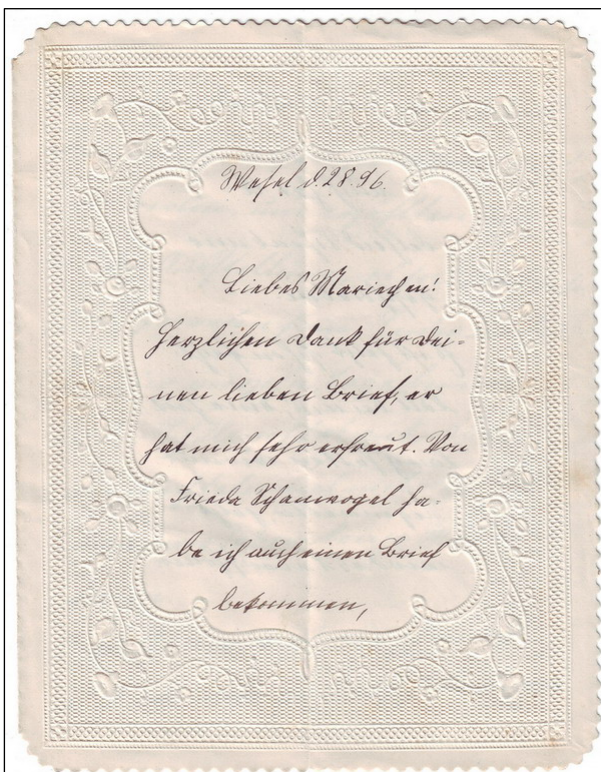 Wesel d. 28. 96.
Liebes Mariechen!
Herzlichen Dank für Dei-
nen lieben Brief, er
hat mich sehr erfreut. Von
Frieda ha-
be ich auch einen Brief
bekommen,